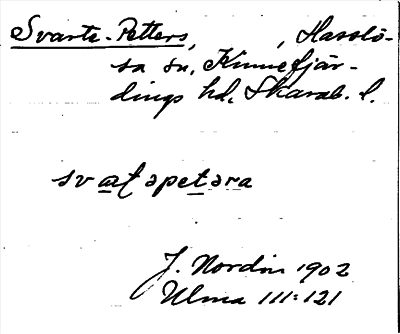 Svarte-Petters, , Hasslö-
sa sn, Kinnefjär-
dings hd, Skarab. l.
svatəpetəra
J. Nordin 1902
Ulma 111:121